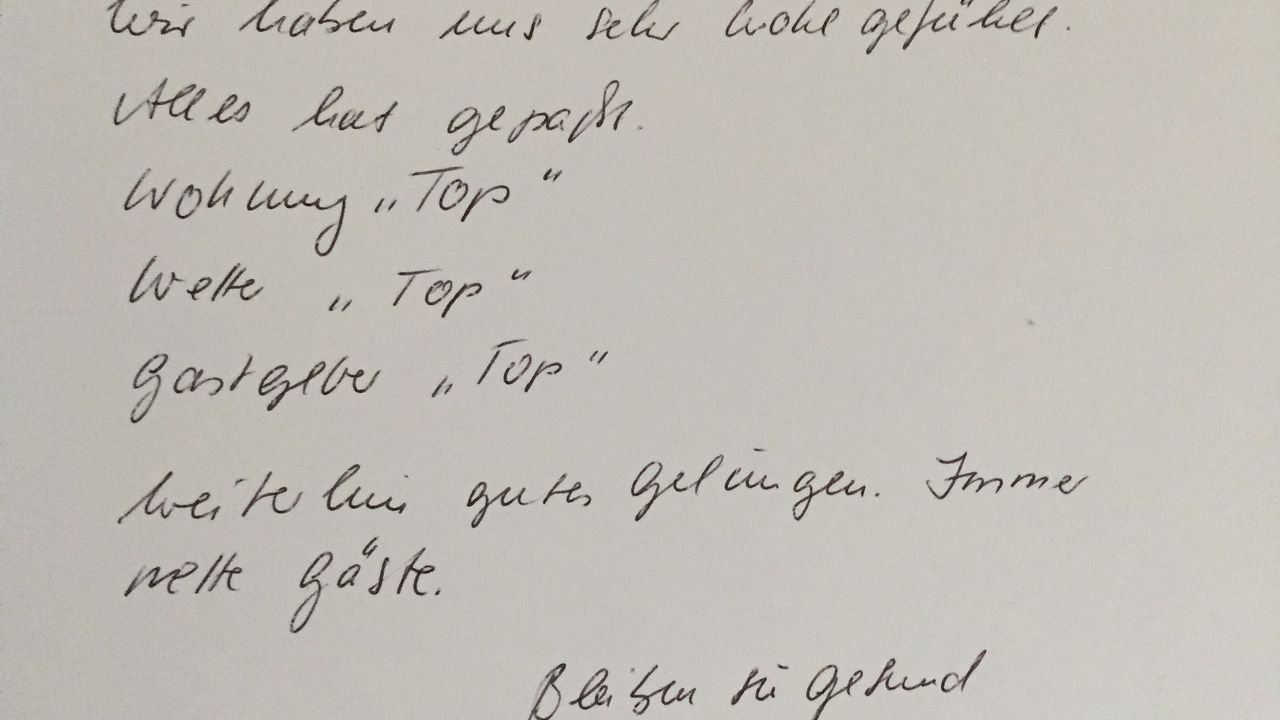 Wir haben uns sehr wohl gefühlt.
Alles hat gepaßt.
Wohnung „Top“
Wetter „Top“
Gastgeber „Top“
Weiterhin gutes Gelingen. Immer
nette Gäste.
Bleiben Sie Gesund